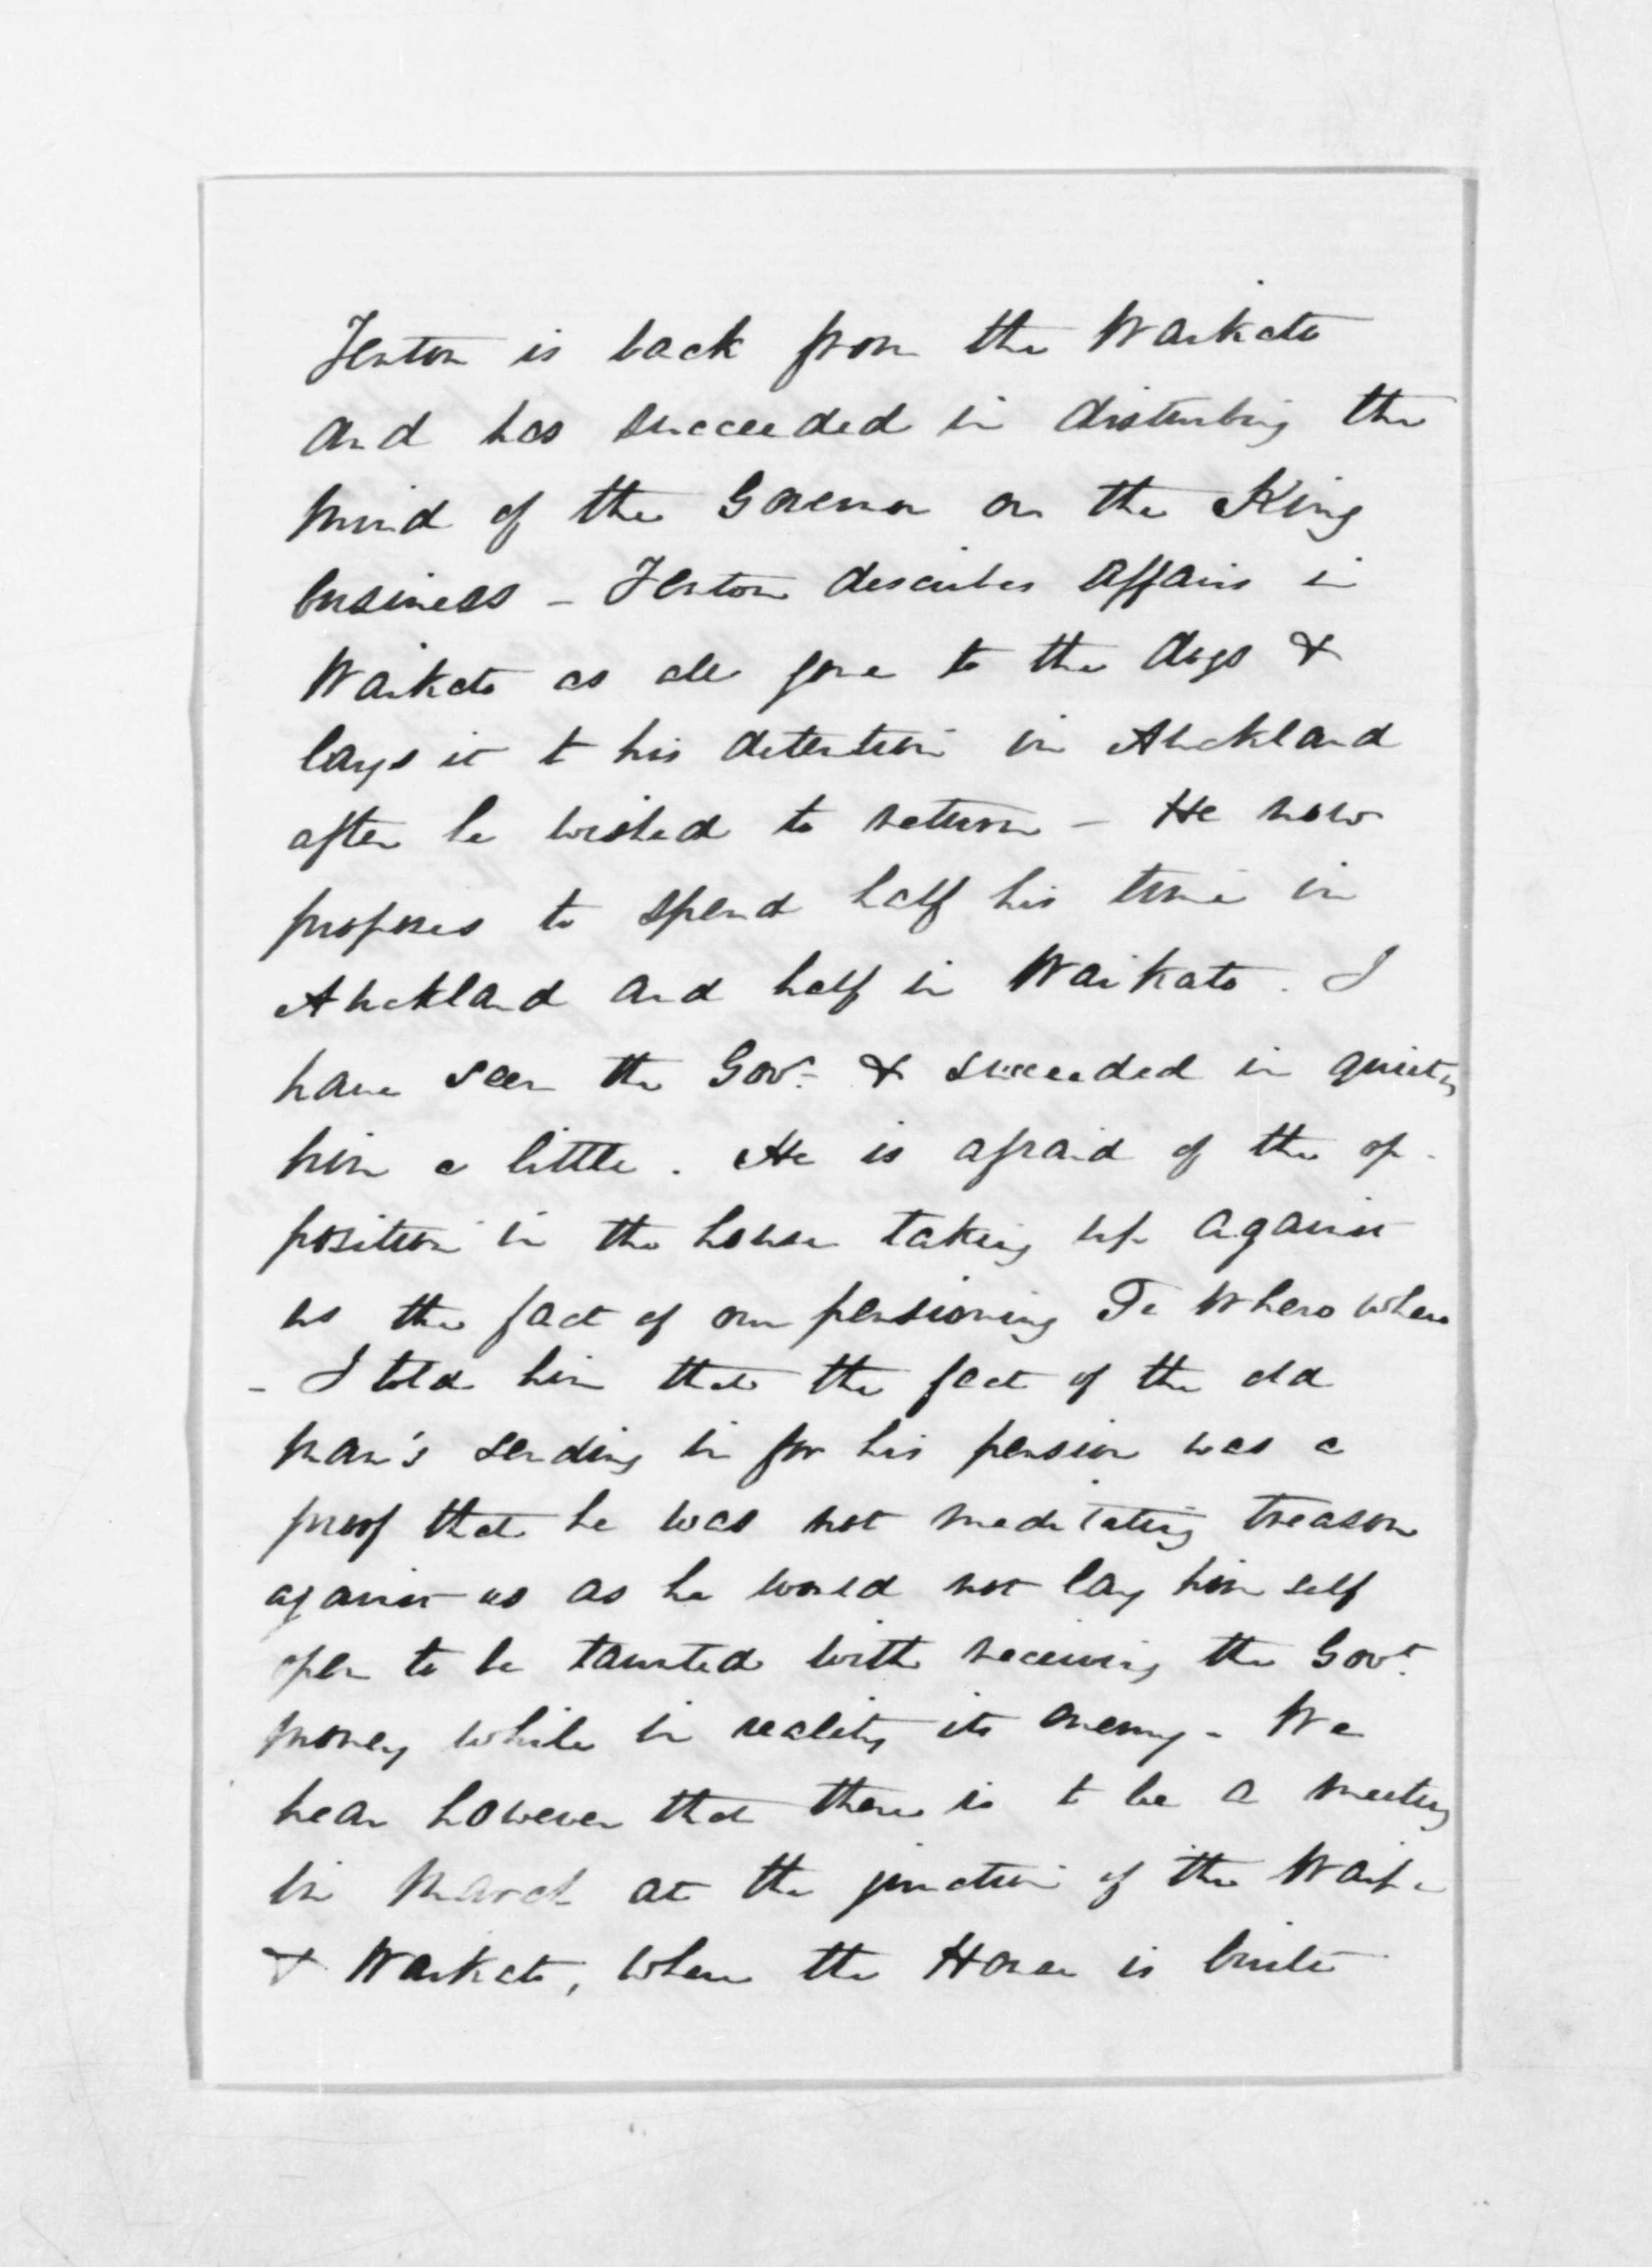 Fenton is back from the Waikato
and has succeeded in disturbing the
mind of the Governor on the King
business - Fenton describes affairs in
Waikato as all gone to the dogs &
lays it to his detention in Auckland
after he wished to return - He now
proposes to spend half his time in
Auckland and half in Waikato. I
have seen the Govr. & succeeded in quieting
him a little. He is afraid of the op-
position in the house taking up against
us the fact of our pensioning Te Whero whero
- I told him that the fact of the old
man's sending in for his pension was a
proof that he was not meditating treason
against us as he would not lay himself
open to be taunted with receiving the Govt.
money while in reality its enemy - We
hear however that there is to be a meeting
in March at the junction of the Waipa
& Waikato, where the House is built